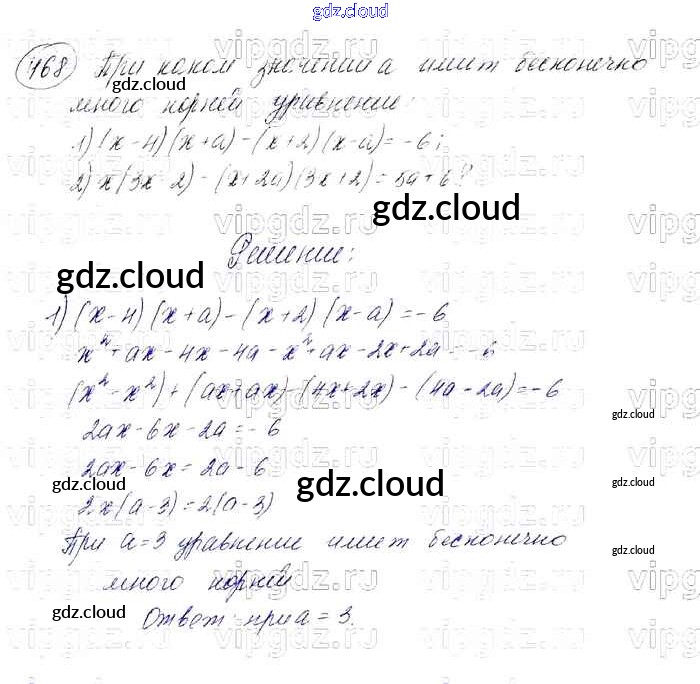 gdz.cloud
468 При каком значении а имеет бесконечно
gdz.cloud
много корней уравнение:
1) (x-4)(x+a)-(x+2)(x-a)=-6;
2) x(3x-2)-(x+2a)(3x+2)=5a+6?
gdz.cloud
Решение:
gdz.cloud
1) (x-4)(x+a)-(x+2)(x-a)=-6
x²+ax-4x-4a-x²+ax-2x+2a=-6
(x²-x²)+(ax+ax)-(4x+2x)-(4a-2a)=-6
gdz.cloud
2ax-6x-2a=-6
2ax-6x=2a-6
gdz.cloud gdz.cloud gdz.cloud
2x(a-3)=2(a-3)
При а=3 уравнение имеет бесконечно
gdz.cloud
много корней
gdz.cloud gdz.cloud
Ответ: при а=3.